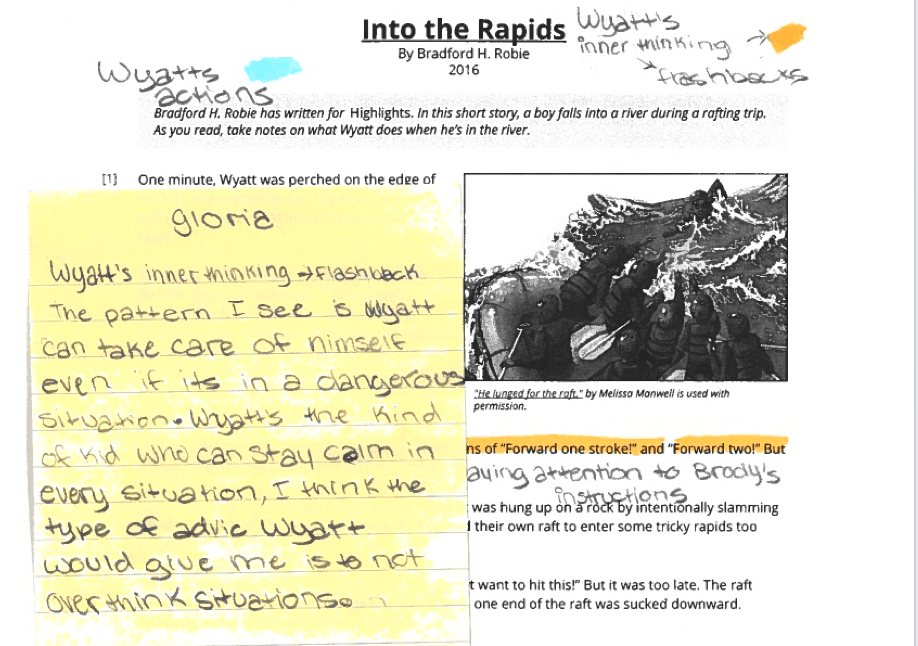 Into the Rapids
By Bradford H. Robie
2016
Wyatt's
inner thinking →
↘ flashbacks
Wyatts
actions
Bradford H. Robie has written for Highlights. In this short story, a boy falls into a river during a rafting trip.
As you read, take notes on what Wyatt does when he's in the river.
[1] One minute, Wyatt was perched on the edge of
gloria
Wyatt's inner thinking → flashback
The pattern I see is Wyatt
can take care of himself
even if its in a dangerous
situation. Wyatt's the kind
of kid who can stay calm in
every situation, I think the
type of advic Wyatt
would give me is to not
over think situations.
"He lunged for the raft." by Melissa Manwell is used with
permission.
ns of "Forward one stroke!" and "Forward two!" But
aying attention to Brody's
instructions
was hung up on a rock by intentionally slamming
their own raft to enter some tricky rapids too
t want to hit this!" But it was too late. The raft
one end of the raft was sucked downward.